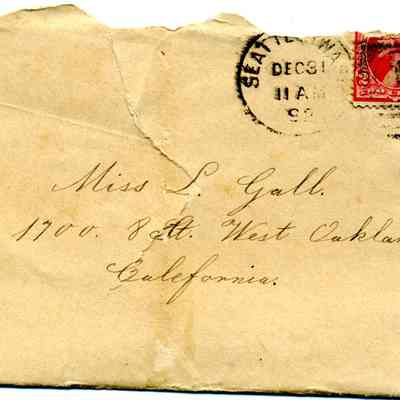 SEATTLE, WA
DEC 31
11 AM
Miss L. Gall.
1700. 8th St. West Oaklan
California.